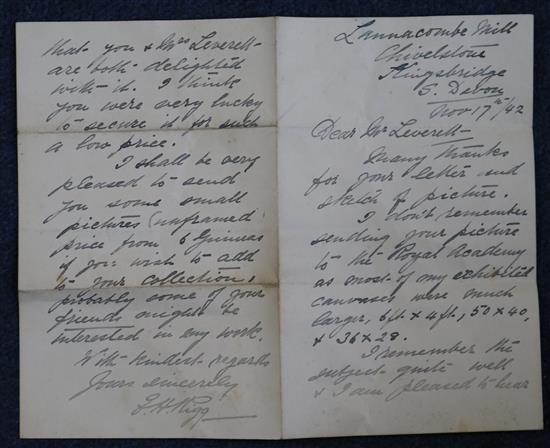 Lannacombe Mill
Chivelstone
Kingsbridge
S. Devon
Nov 17th/42
Dear Mr Leverett
Many thanks
for your letter and
sketch of picture.
I don't remember
sending your picture
to the Royal Academy
as most of my exhibited
canvasses were much
larger, 6ft x 4ft, 50 x 40,
& 36 x 28.
I remember the
subject quite well
& I am pleased to hear
that you & Mrs Leverett
are both delighted
with it. I think
you were very lucky
to secure it for such
a low price.
I shall be very
pleased to send
you some small
pictures (unframed)
price from 6 Guineas
if you wish to add
to your collection,
probably some of your
friends might be
interested in my work.
With kindest regards
Yours sincerely
E. H. Rigg